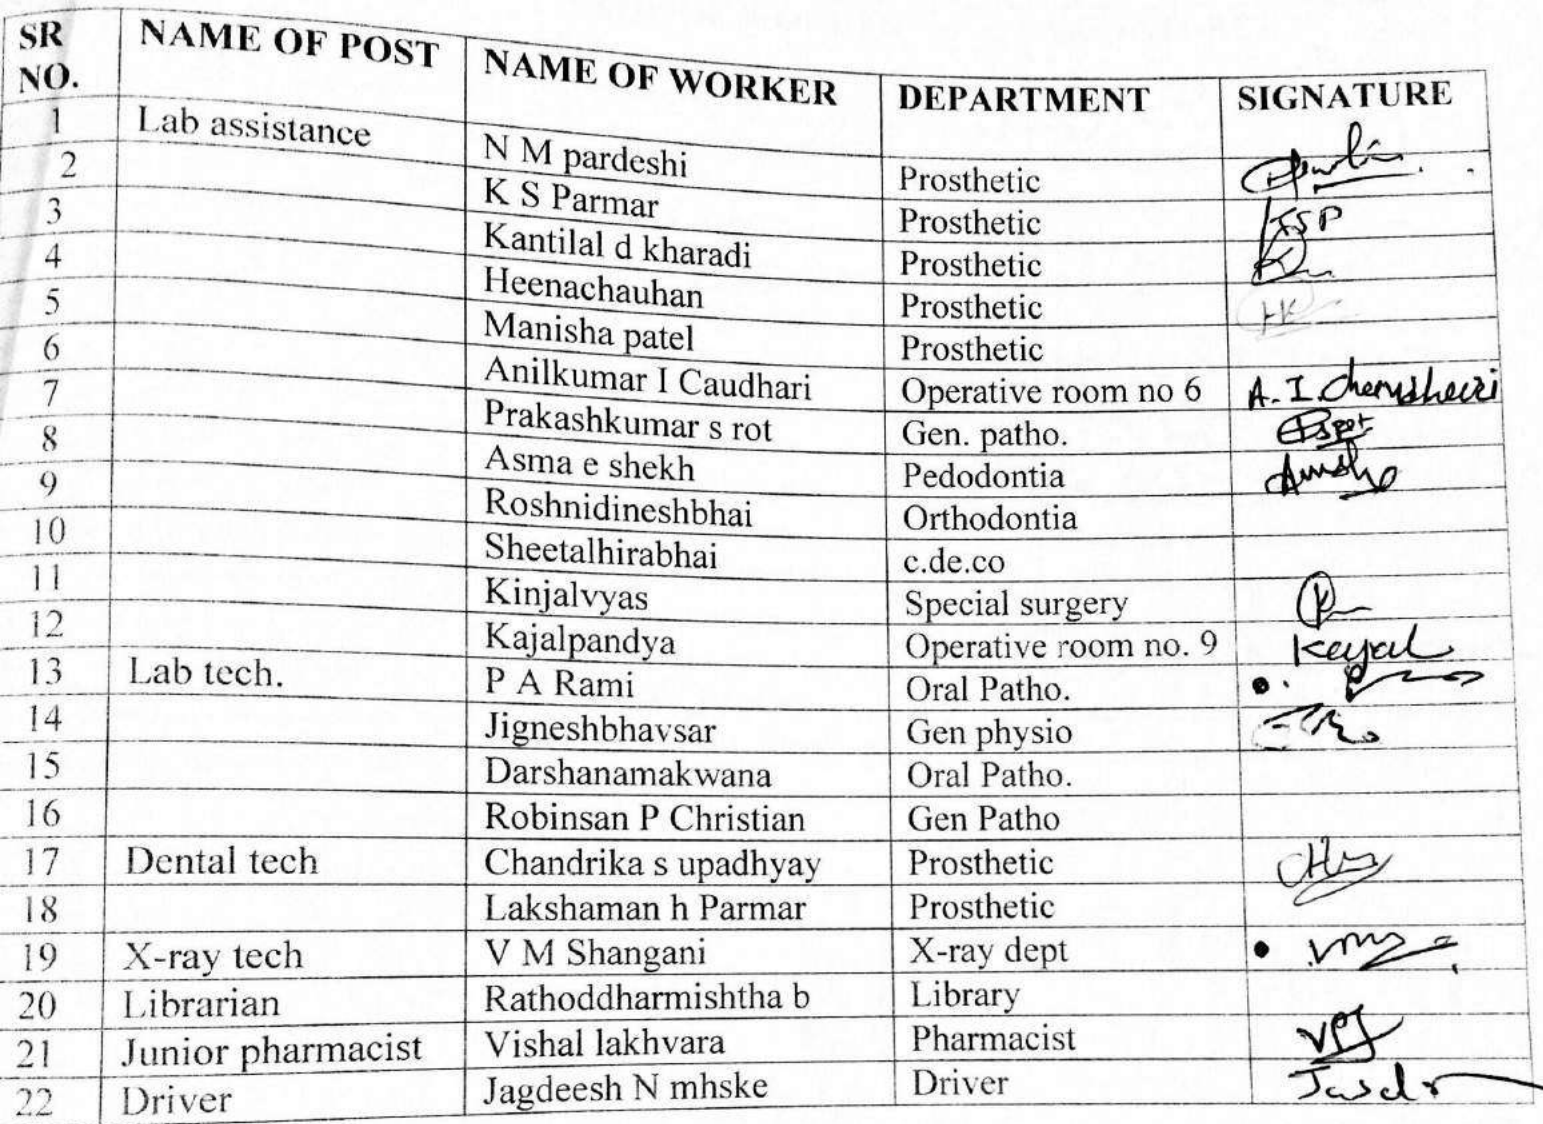 SR NO. NAME OF POST NAME OF WORKER DEPARTMENT SIGNATURE
1 Lab assistance N M pardeshi Prosthetic
2 K S Parmar Prosthetic KSP
3 Kantilal d kharadi Prosthetic
4 Heenachauhan Prosthetic
5 Manisha patel Prosthetic
6 Anilkumar I Caudhari Operative room no 6 A. I. Chaudhari
7 Prakashkumar s rot Gen. patho.
8 Asma e shekh Pedodontia
9 Roshnidineshbhai Orthodontia
10 Sheetalhirabhai c.de.co
11 Kinjalvyas Special surgery
12 Kajalpandya Operative room no. 9 Kajal
13 Lab tech. P A Rami Oral Patho.
14 Jigneshbhavsar Gen physio
15 Darshanamakwana Oral Patho.
16 Robinsan P Christian Gen Patho
17 Dental tech Chandrika s upadhyay Prosthetic
18 Lakshaman h Parmar Prosthetic
19 X-ray tech V M Shangani X-ray dept
20 Librarian Rathoddharmishtha b Library
21 Junior pharmacist Vishal lakhvara Pharmacist
22 Driver Jagdeesh N mhske Driver